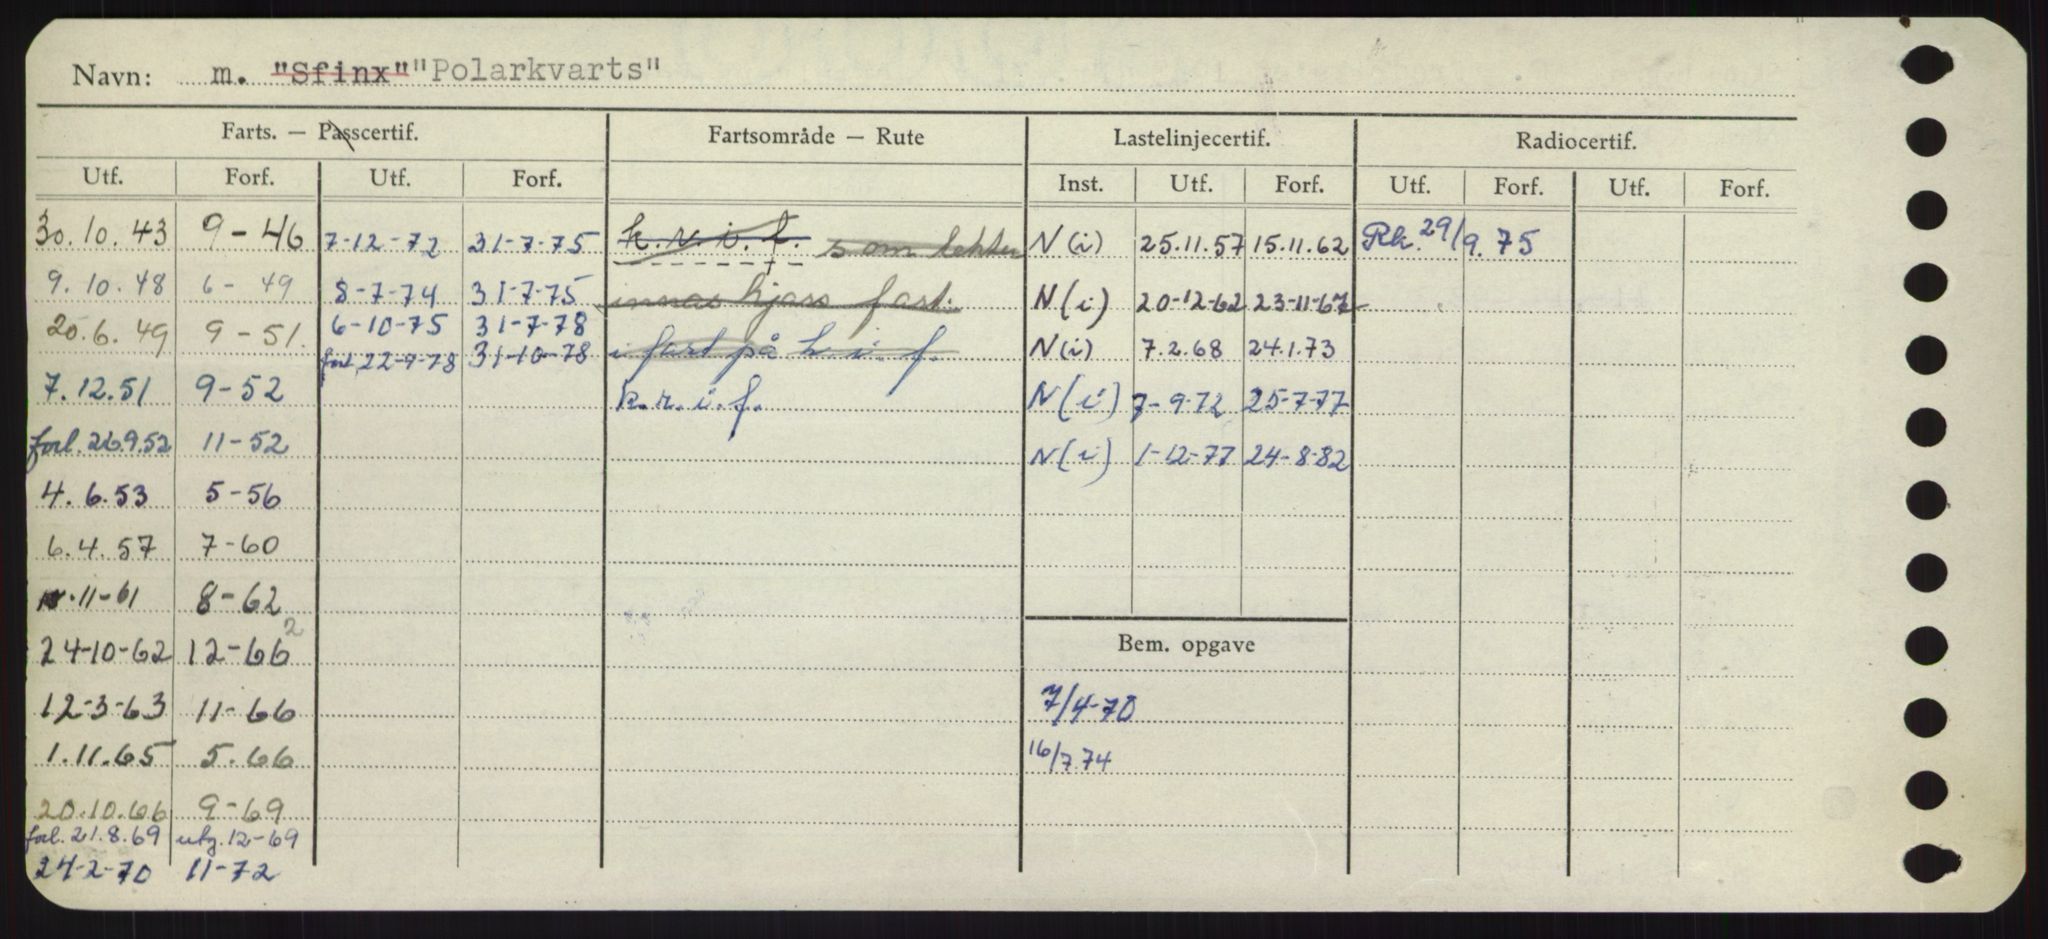 Navn: m. "Sfinx" "Polarkvarts"
Farts. — Passcertif. Fartsområde — Rute Lastelinjecertif. Radiocertif.
Utf. Forf. Utf. Forf. Inst. Utf. Forf. Utf. Forf. Utf. Forf.
30.10.43 9-46 7-12-72 31-7-75 k.r.i.f. som lekter N(i) 25.11.57 15.11.62 Rk. 29/9.75
9.10.48 6-49 8-7-74 31-7-75 fart. N(i) 20-12-62 23-11-67
20.6.49 9-51. 6-10-75 31-7-78
forl. 22-9-78 31-10-78 i fart på k.i.f. N(i) 7.2.68 24.1.73
7.12.51 9-52 k.r.i.f. N(i) 7-9-72 25-7-77
forl. 26.9.52 11-52 N(i) 1-12-77 24-8-82
4.6.53 5-56
6.4.57 7-60
11-61 8-62
24-10-62 12-66 2
Bem. opgave
12-3-63 11-66 7/4-70
1.11.65 5.66 16/7.74
20.10.66 9-69
forl. 21.8.69 utg. 12-69
24-2-70 11-72